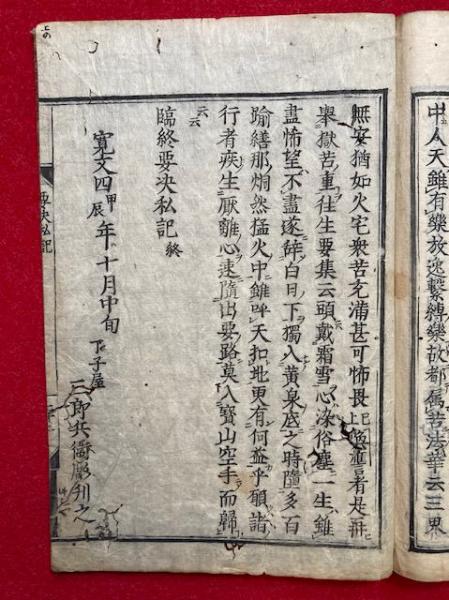 中人天雖有樂放逸繫縛樂故都属苦法華云三界
無安猶如火宅衆苦充滿甚可怖畏已上者是
獄苦重往生要集云頭戴霜雪心染俗塵一生雖
盡怖望不盡遂辞白日下獨入黄泉底之時墮多百
踰繕那烔然猛火中雖呼天扣地更有何益乎願諸
行者疾生厭離心速隨出要路莫入寶山空手而歸
云云
臨終要決私記 終
寛文四甲辰年十月中旬
子屋
三郎兵衛彫刊之
要決私記
上の